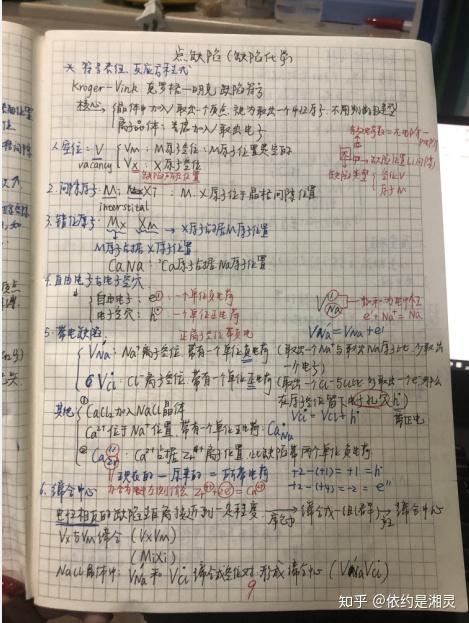 点缺陷(缺陷化学)
* 符号表征、反应方程式
Kroger-Vink 克罗格-明克缺陷符号
核心→ 晶体中加入/取出一个质点, 视为取出一个中性原子,不用判断键型
离子晶体: 考虑加入/取出电子
1.空位: V
vacancy
Vm: M原子空位: M原子位置是空的
Vx: X原子空位
缺陷所在位置
缺陷类型
空位V
原子M
2. 间隙原子: Mi Xi : M、X原子位于晶格间隙位置
interstital
3. 错位原子: Mx Xm → X原子占据M原子位置
M原子占据X原子位置
CaNa: Ca原子占据Na原子位置
4. 自由电子与电子空穴
自由电子: e' : 一个单位负电荷
电子空穴: h· : 一个单位正电荷
正离子空位带负电
e'+Na⁺=Na
5. 带电缺陷
VNa' = VNa + e'
VNa': Na⁺离子空位, 带有一个单位负电荷 (取出一个Na⁺与取出Na原子比,少取出一个电子)
VCl·: Cl⁻离子空位 带有一个单位正电荷
VCl· = VCl + h·
带正电
其他
CaCl₂加入NaCl晶体
Ca²⁺位于Na⁺位置, 带有一个正电荷: CaNa·
+2-(+1)=+1=h·
现在的-原来的=所带电荷
+2-(+4)=-2=e''
6. 缔合中心
电性相反的缺陷距离接近到一定程度 → 缔合成一组(群) → 缔合中心
Vx与Vm缔合 (VxVm)
(MiXi)
NaCl晶体中: VNa' 和 VCl· 缔合成空位对, 形成缔合中心 (VNa'VCl·)
9
知乎 @依约是湘灵